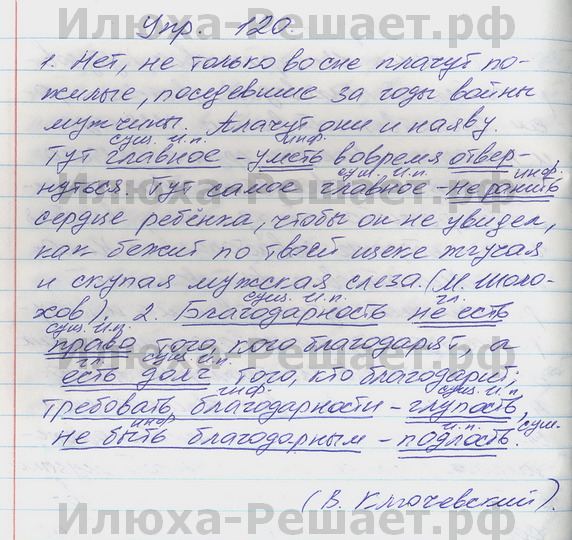 Илюха-Решает.рф
Упр. 120.
1. Нет, не только во сне плачут по-
жилые, поседевшие за годы войны
мужчины. Плачут они и наяву.
сущ. И.п. инф.
Тут главное - уметь вовремя отвер-
сущ. И.п. инф.
нуться. Тут самое главное - не ранить
сердце ребёнка, чтобы он не увидел,
как бежит по твоей щеке жгучая
и скупая мужская слеза. (М. Шоло-
сущ. И.п. гл.
хов). 2. Благодарность не есть
сущ. И.п.
право того, кого благодарят, а
гл. сущ. И.п.
есть долг того, кто благодарит;
инф. сущ. И.п.
требовать благодарности - глупость,
инф. И.п. сущ.
не быть благодарным - подлость.
(В. Ключевский).
Илюха-Решает.рф